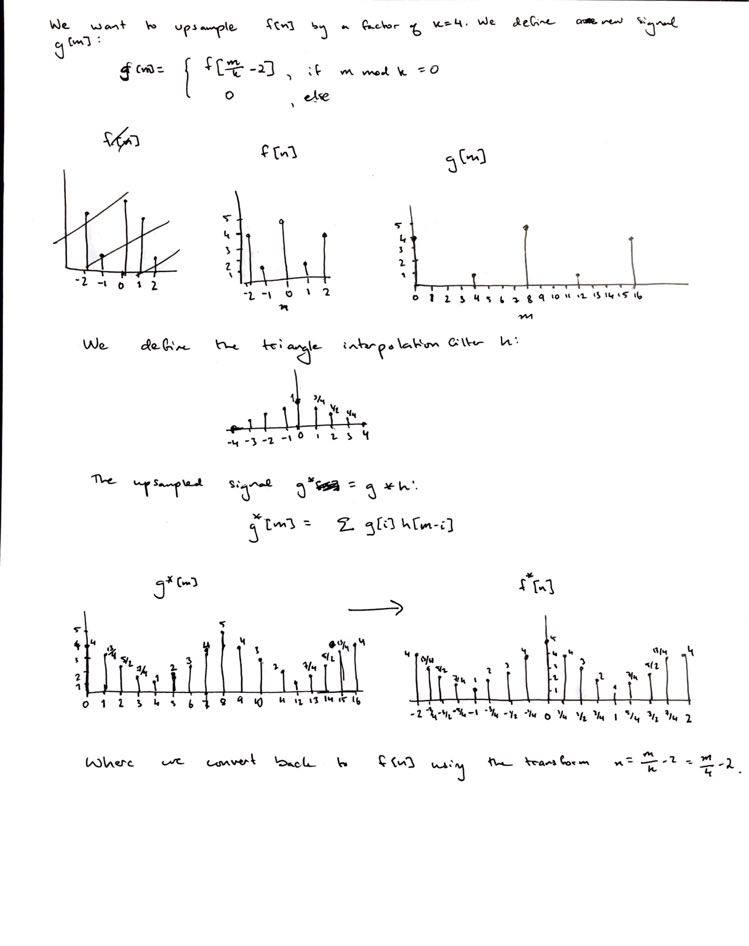 We want to upsample f[n] by a factor of k=4. We define new signal
g[m]:
g[m]= { f[m/k -2], if m mod k = 0
0 , else
f[n]
f[n]
g[m]
5
4
3
2
1
-2 -1 0 1 2
-2 -1 0 1 2
n
5
4
3
2
1
0 1 2 3 4 5 6 7 8 9 10 11 12 13 14 15 16
m
We define the triangle interpolation filter h:
1 3/4 1/2 1/4
-4 -3 -2 -1 0 1 2 3 4
The upsampled signal g* = g * h:
g*[m] = Σ g[i] h[m-i]
g*[m]
f*[n]
5
4
3
2
1
4 13/4 5/2 7/4 1 2 3 4 5 4 3 2 7/4 5/2 13/4 4
0 1 2 3 4 5 6 7 8 9 10 11 12 13 14 15 16
4 13/4 5/2 7/4 1 2 3 4 5 4 3 2 1 7/4 5/2 13/4 4
-2 -7/4 -3/2 -5/4 -1 -3/4 -1/2 -1/4 0 1/4 1/2 3/4 1 5/4 3/2 7/4 2
Where we convert back to f[n] using the transform n= m/k -2 = m/4 -2.